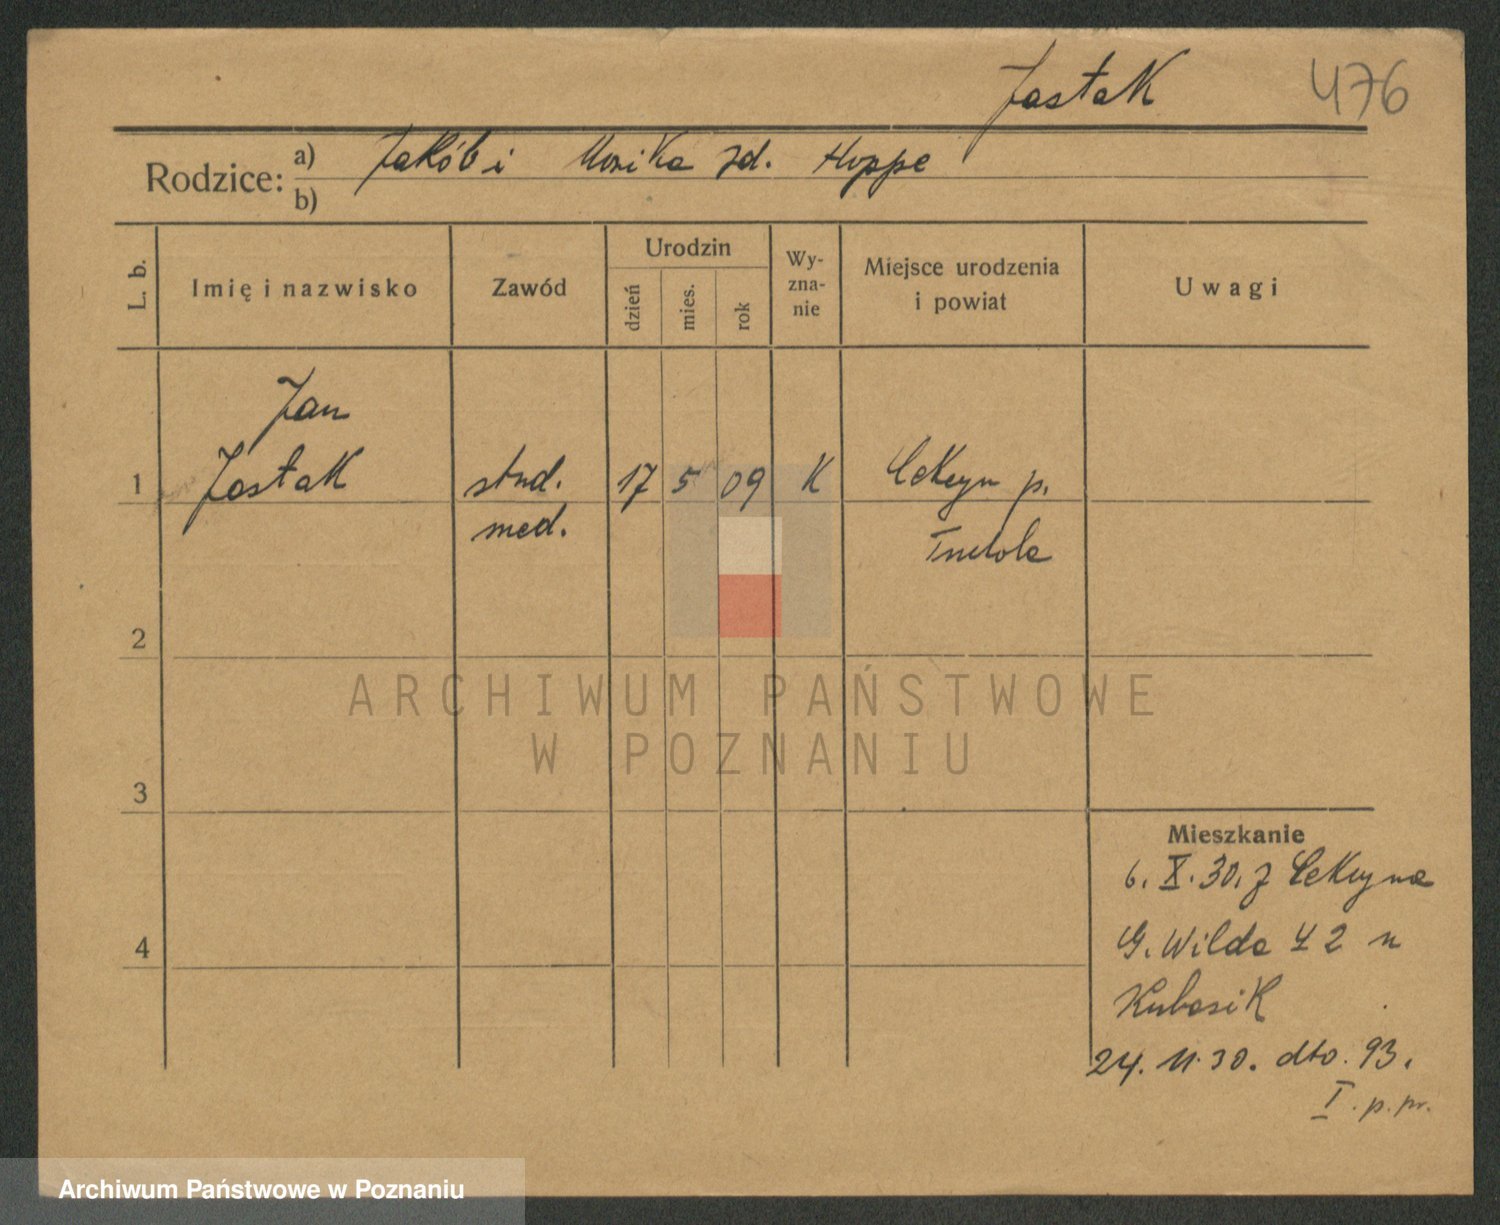 JastaK
476
Rodzice:
a) Jakób i Marika zd. Hoppe
b)
L. b.
Imię i nazwisko
Zawód
Urodzin
dzień
mies.
rok
Wy-
zna-
nie
Miejsce urodzenia
i powiat
Uwagi
Jan
1 JastaK stud. 17 5 09 K CeKcyn p.
med.
2
3
4
Mieszkanie
6. X. 30. z CeKcyna
G. Wilda 42 u
KubasiK
24. 11. 30. dto. 93.
I. p. pr.
ARCHIWUM PAŃSTWOWE
W POZNANIU
Archiwum Państwowe w Poznaniu